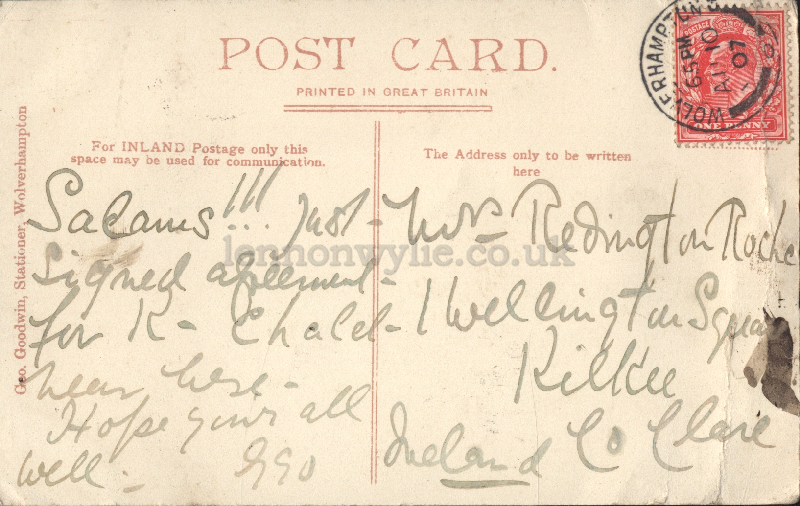 POST CARD.
PRINTED IN GREAT BRITAIN
WOLVERHAMPTON
65 PM
AU 10
07
ONE PENNY
Geo. Goodwin, Stationer, Wolverhampton
For INLAND Postage only this
space may be used for communication.
Salams!!! Just -
signed agreement -
for K - Chalet -
near here -
Hope your all
well -
The Address only to be written
here
Mrs Redington Roche
1 Wellington Square
Kilkee
Co Clare
Ireland
lennonwylie.co.uk